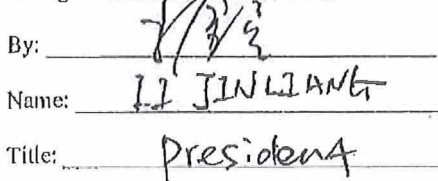 By:
Name: LI JINLIANG
Title: President